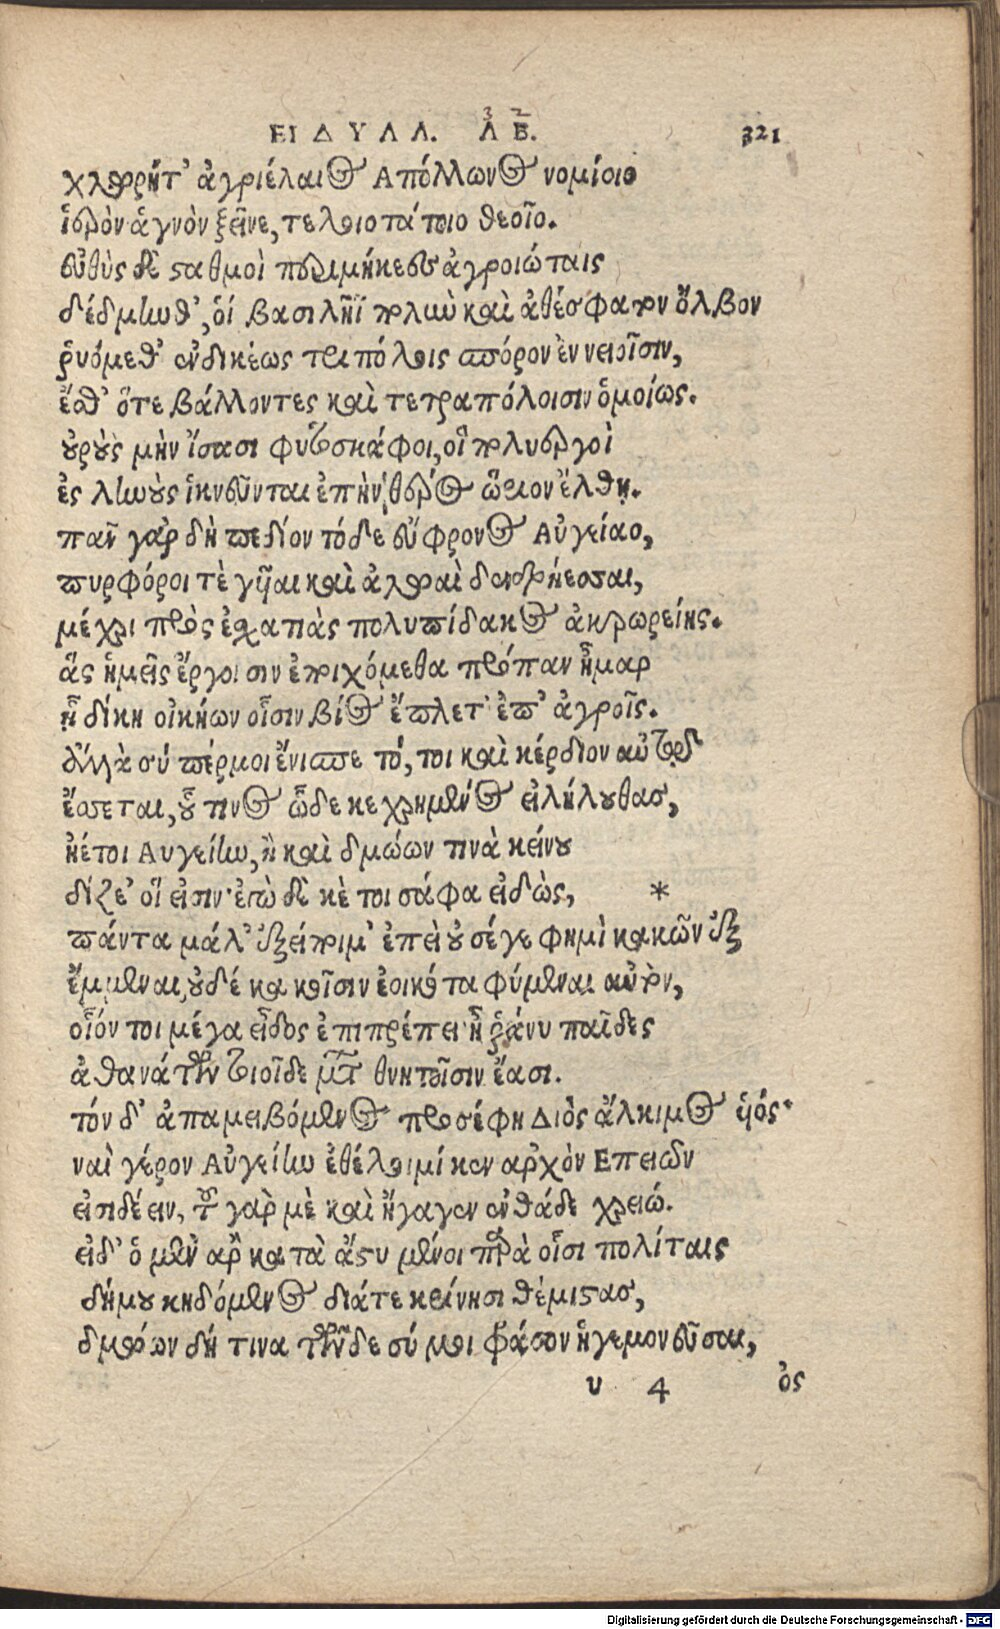 ΕΙΔΥΛΛ. ΛΒ. 321
χλωρήτ' ἀγριέλαιος Απόλλωνος νομίοιο
ἱερὸν ἁγνὸν ξεῖνε, τελειοτάτοιο θεοῖο.
εὐθὺς δὲ σταθμοὶ περιμήκεες ἀγροιώταις
δέδμηνθ', οἱ βασιλῆϊ πολὺν καὶ ἀθέσφατον ὄλβον
ῥυόμεθ' ἐνδικέως τριπόλοις σπόρον ἐν νειοῖσιν,
ἔσθ' ὅτε βάλλοντες καὶ τετραπόλοισιν ὁμοίως.
οὐροὺς μὴν ἴσασι φυτοσκάφοι, οἳ πολυεργοὶ
ἐς ληνοὺς ἱκνεῦνται ἐπὴν θέρος ὥριον ἔλθῃ.
πᾶν γὰρ δὴ πεδίον τόδε εὔφρονος Αὐγείαο,
πυρφόροι τὲ γῦαι καὶ ἀλωαὶ δενδρήεσσαι,
μέχρι πρὸς ἐσχατιὰς πολυπίδακος ἀκρωρείης.
ἃς ἡμεῖς ἔργοισιν ἐποιχόμεθα πρόπαν ἦμαρ
ᾗ δίκη οἰκήων οἷσιν βίος ἔπλετ' ἐπ' ἀγροῖς.
ἀλλὰ σύ πέρ μοι ἔνισπε τό, τοι καὶ κέρδιον αὐτῷ
ἔσσεται, οὗ τινος ὧδε κεχρημένος εἰλήλουθας,
ἠέ τοι Αυγείην, ἢ καὶ δμώων τινὰ κείνου
δίζε' οἵ εἰσιν· ἐγὼ δὲ κέ τοι σάφα εἰδὼς, *
πάντα μάλ' ἐξείποιμ' ἐπεὶ οὐ σέγε φημὶ κακῶν ἐξ
ἔμμεναι, οὐδέ κακοῖσιν ἐοικότα φύμεναι αὐτόν,
οἷόν τοι μέγα εἶδος ἐπιπρέπει· ἦ ῥά νυ παῖδες
ἀθανάτων τοιοῖδε μετὰ θνητοῖσιν ἔασι.
τόν δ' ἀπαμειβόμενος προσέφη Διὸς ἄλκιμος υἱός·
ναὶ γέρον Αὐγείην ἐθέλοιμί κεν αρχὸν Επειῶν
εἰσιδέειν, τοῦ γὰρ μὲ καὶ ἤγαγεν ἐνθάδε χρειώ.
εἰδ' ὁ μὲν ἂρ κατὰ ἄστυ μένοι παρὰ οἷσι πολίταις
δήμου κηδόμενος διάτε κρίνησι θέμιστας,
δμώων δή τινα τῶνδε σύ μοι φράσον ἡγεμονεῦσαι,
υ 4 ὃς
Digitalisierung gefördert durch die Deutsche Forschungsgemeinschaft - DFG